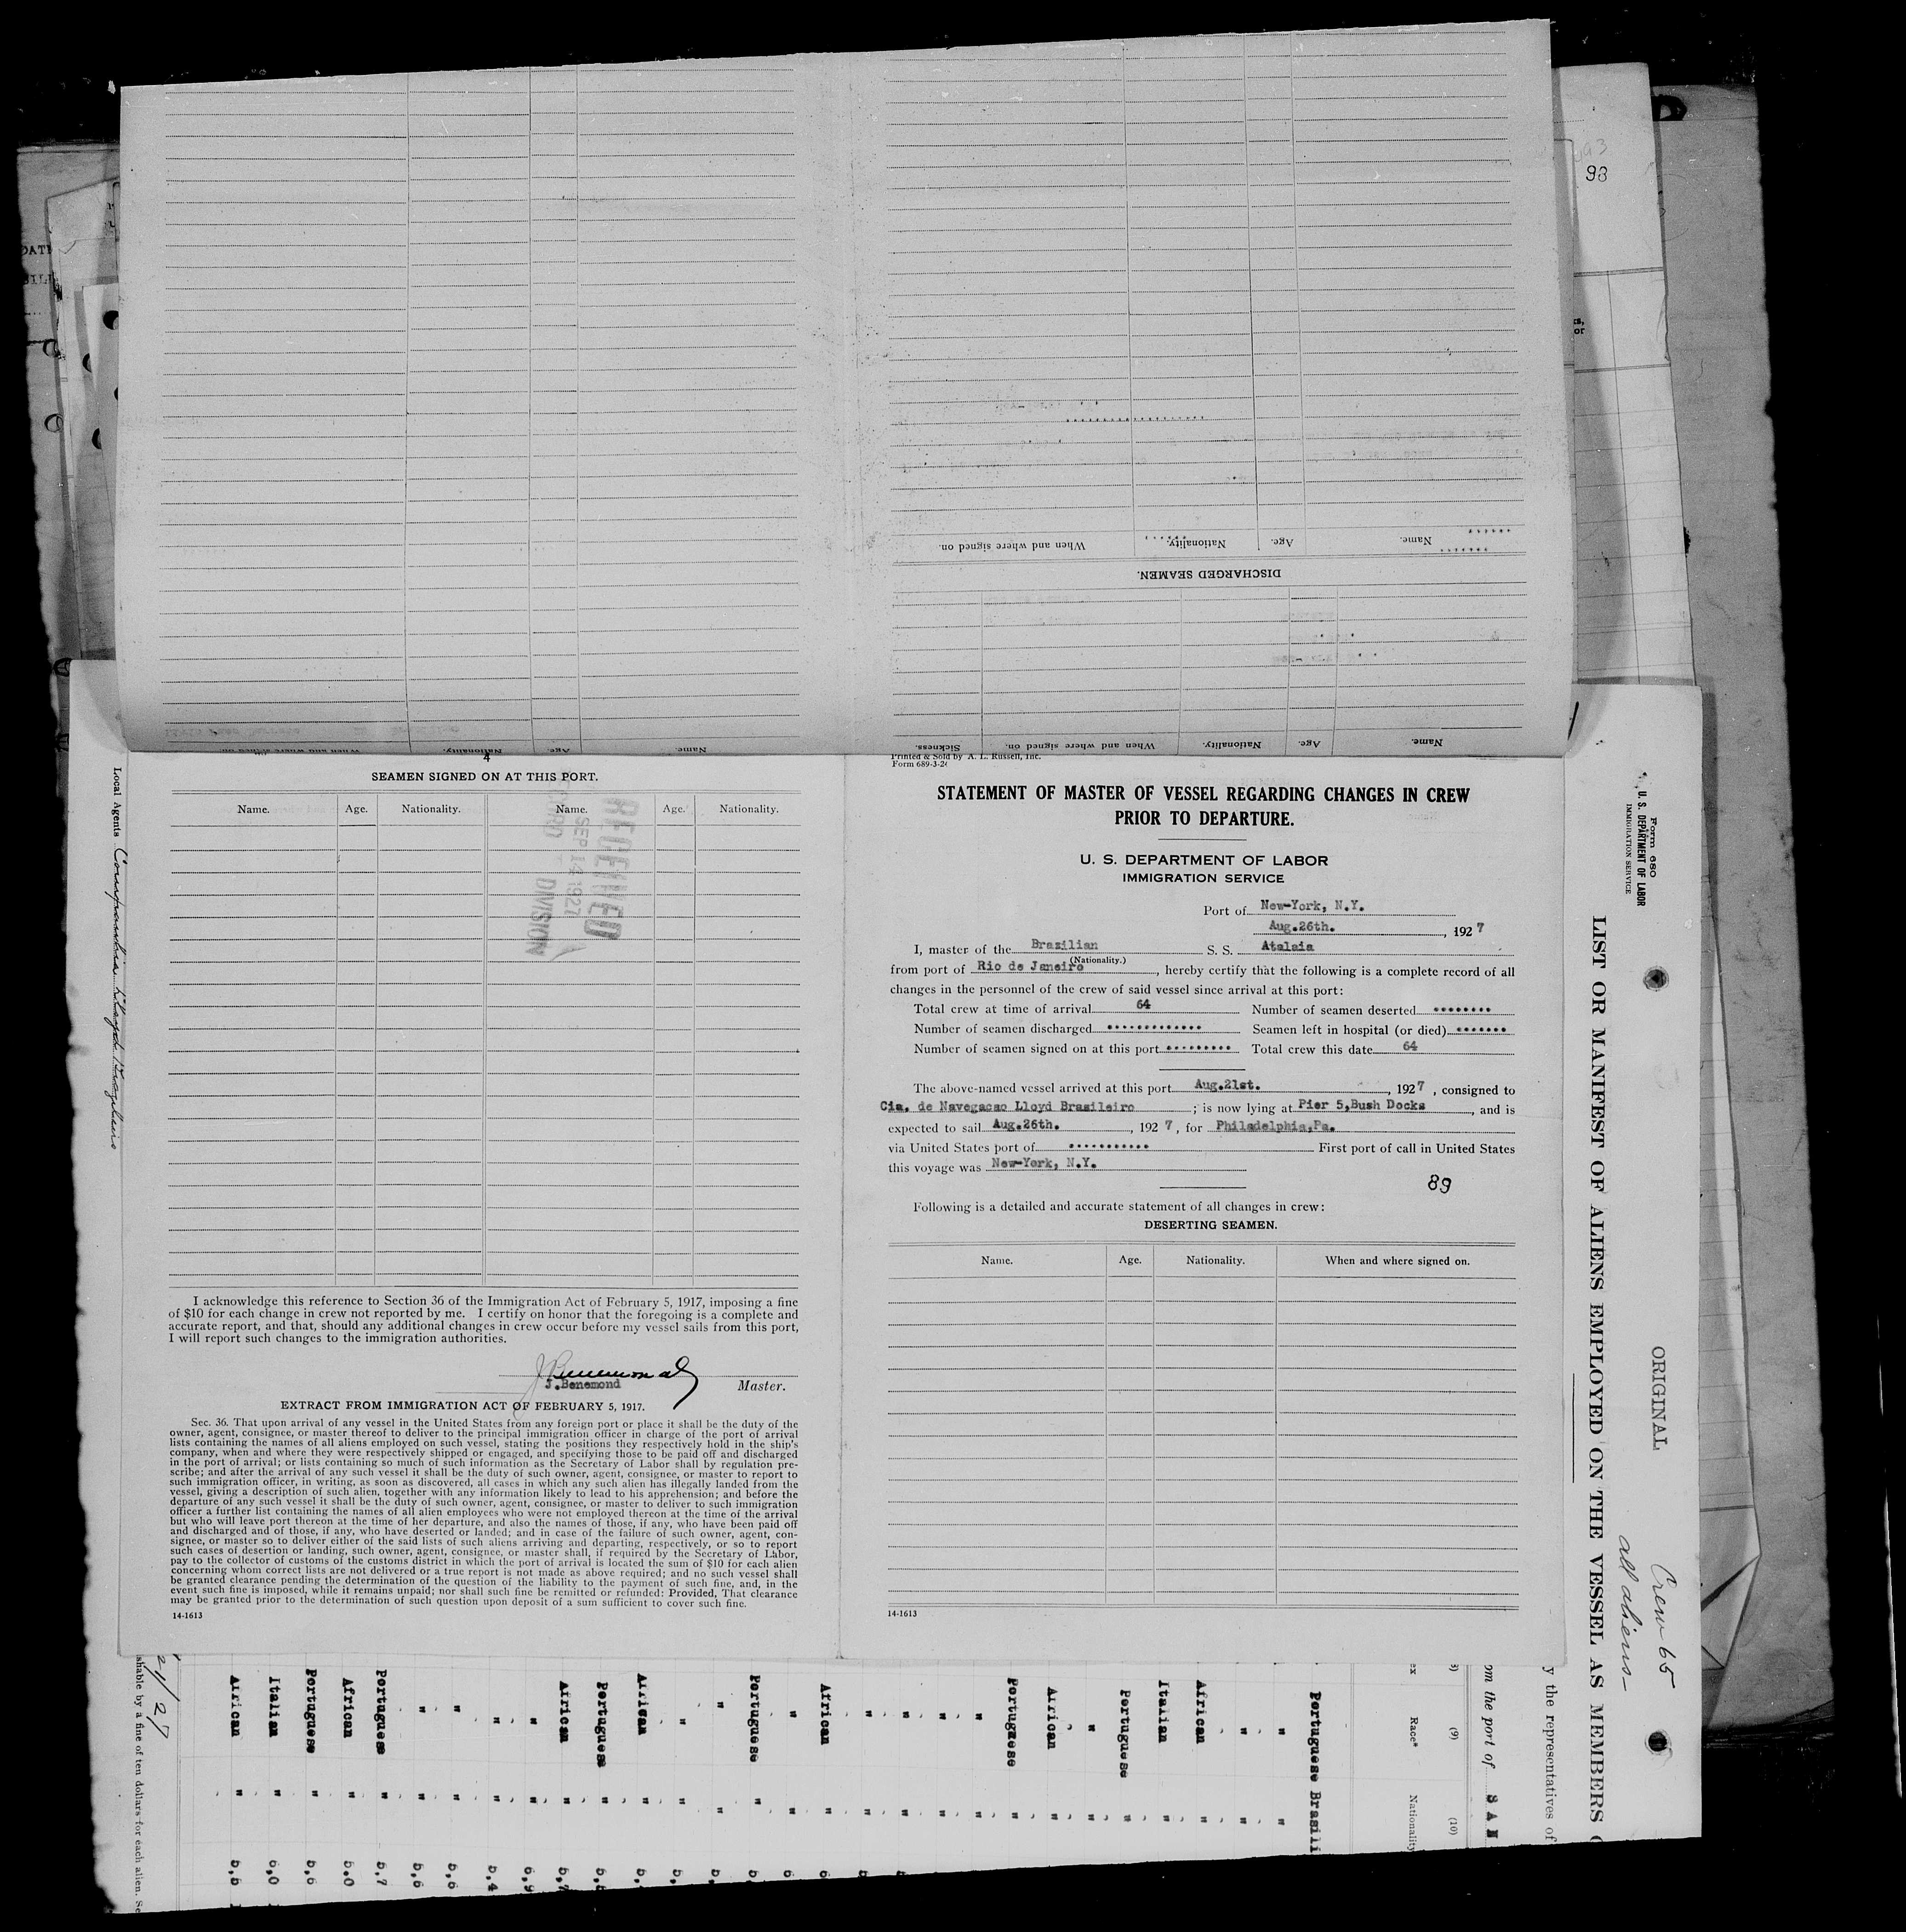 DISCHARGED SEAMEN.
Name. Age. Nationality. When and where signed on.
Name. Age. Nationality. When and where signed on. Sickness.
Name. Age. Nationality. When and where signed on.
98
4
SEAMEN SIGNED ON AT THIS PORT.
Name. Age. Nationality. Name. Age. Nationality.
RECEIVED
SEP 14 1927
RECORD DIVISION
I acknowledge this reference to Section 36 of the Immigration Act of February 5, 1917, imposing a fine
of $10 for each change in crew not reported by me. I certify on honor that the foregoing is a complete and
accurate report, and that, should any additional changes in crew occur before my vessel sails from this port,
I will report such changes to the immigration authorities.
J.Benemond Master.
EXTRACT FROM IMMIGRATION ACT OF FEBRUARY 5, 1917.
Sec. 36. That upon arrival of any vessel in the United States from any foreign port or place it shall be the duty of the
owner, agent, consignee, or master thereof to deliver to the principal immigration officer in charge of the port of arrival
lists containing the names of all aliens employed on such vessel, stating the positions they respectively hold in the ship's
company, when and where they were respectively shipped or engaged, and specifying those to be paid off and discharged
in the port of arrival; or lists containing so much of such information as the Secretary of Labor shall by regulation pre-
scribe; and after the arrival of any such vessel it shall be the duty of such owner, agent, consignee, or master to report to
such immigration officer, in writing, as soon as discovered, all cases in which any such alien has illegally landed from the
vessel, giving a description of such alien, together with any information likely to lead to his apprehension; and before the
departure of any such vessel it shall be the duty of such owner, agent, consignee, or master to deliver to such immigration
officer a further list containing the names of all alien employees who were not employed thereon at the time of the arrival
but who will leave port thereon at the time of her departure, and also the names of those, if any, who have been paid off
and discharged and of those, if any, who have deserted or landed; and in case of the failure of such owner, agent, con-
signee, or master so to deliver either of the said lists of such aliens arriving and departing, respectively, or so to report
such cases of desertion or landing, such owner, agent, consignee, or master shall, if required by the Secretary of Labor,
pay to the collector of customs of the customs district in which the port of arrival is located the sum of $10 for each alien
concerning whom correct lists are not delivered or a true report is not made as above required; and no such vessel shall
be granted clearance pending the determination of the question of the liability to the payment of such fine, and, in the
event such fine is imposed, while it remains unpaid; nor shall such fine be remitted or refunded: Provided, That clearance
may be granted prior to the determination of such question upon deposit of a sum sufficient to cover such fine.
14-1613
Printed & Sold by A. L. Russell, Inc.
Form 689-3-26
STATEMENT OF MASTER OF VESSEL REGARDING CHANGES IN CREW
PRIOR TO DEPARTURE.
U. S. DEPARTMENT OF LABOR
IMMIGRATION SERVICE
Port of New-York, N.Y.
Aug.26th. , 1927
I, master of the Brazilian S. S. Atalaia
(Nationality.)
from port of Rio de Janeiro , hereby certify that the following is a complete record of all
changes in the personnel of the crew of said vessel since arrival at this port:
Total crew at time of arrival 64 Number of seamen deserted
Number of seamen discharged Seamen left in hospital (or died)
Number of seamen signed on at this port Total crew this date 64
The above-named vessel arrived at this port Aug.21st. , 1927 , consigned to
Cia. de Navegacao Lloyd Brasileiro ; is now lying at Pier 5,Bush Docks , and is
expected to sail Aug.26th. , 1927 , for Philadelphia,Pa.
via United States port of First port of call in United States
this voyage was New-York, N.Y.
89
Following is a detailed and accurate statement of all changes in crew:
DESERTING SEAMEN.
Name. Age. Nationality. When and where signed on.
14-1613
Form 680
U. S. DEPARTMENT OF LABOR
IMMIGRATION SERVICE
ORIGINAL
Crew 65
all aliens-
LIST OR MANIFEST OF ALIENS EMPLOYED ON THE VESSEL AS MEMBERS
y the representatives of
om the port of SAN
(9) (10)
Race* Nationality
Portuguese Brasili
"
"
African
Italian
Portuguese
"
African
Portuguese
"
"
"
"
African
"
Portuguese
"
"
African
Portuguese
African
"
"
"
"
Portuguese 5,7
African 5,0
Portuguese 5,6
Italian 6,0
African 5,5
21/27
shable by a fine of ten dollars for each alien. Se
Local Agents